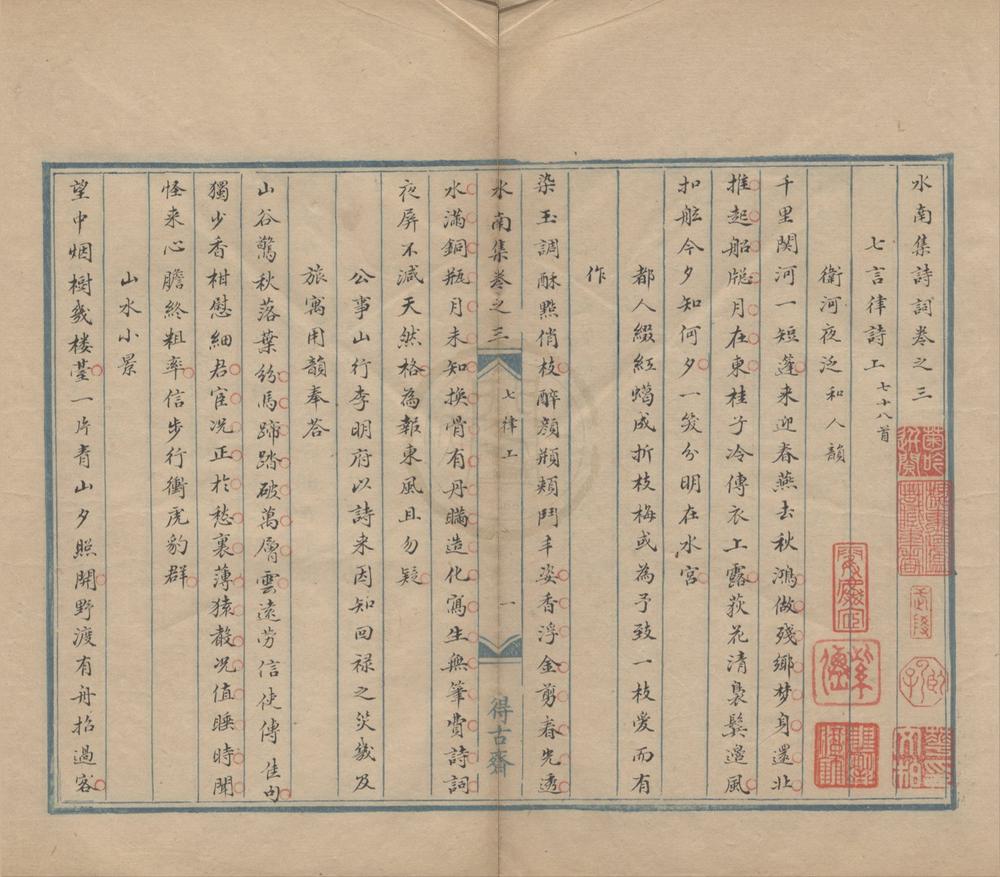 水南集詩詞卷之三
七言律詩上七十八首
衛河夜泛和人韻
千里関河一短蓬来迎春燕去秋鴻做殘鄉梦身還北
推起船牕月在東桂子冷傳衣上露荻花清裊鬓邊風
扣舷今夕知何夕一笑分明在水宮
都人綴紅蠟成折枝梅或為予致一枝愛而有
作
染玉調酥點俏枝醉顔頳頰鬥丰姿香浮金剪春先透
水南集卷之三 七律上 一 得古齋
水滿銅瓶月未知換骨有丹瞞造化寫生無筆費詩詞
夜屏不減天然格為報東風且勿疑
公事山行李明府以詩来因知回禄之災幾及
旅寓用韻奉荅
山谷驚秋落葉紛馬蹄踏破萬層雲遠劳信使傳佳句
獨少香柑慰細君宦况正於愁裏薄猿聲况值睡時聞
怪来心膽終粗率信步行衝虎豹群
山水小景
望中烟樹幾楼䑓一片青山夕照開野渡有舟招過客